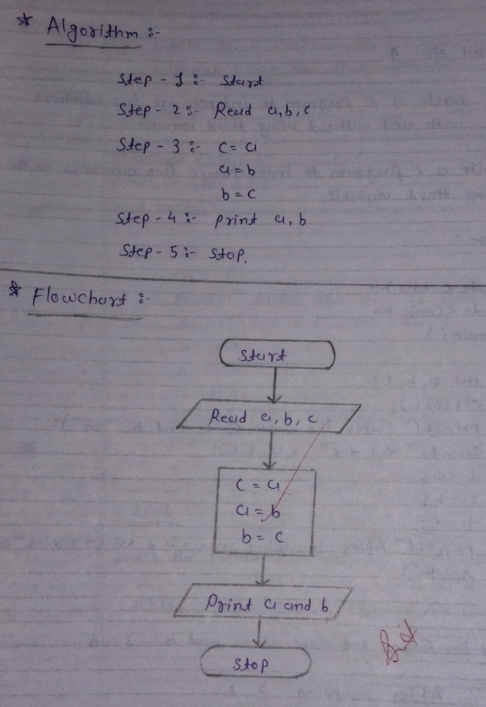 * Algorithm :-
Step - 1 :- Start
Step - 2 :- Read a, b, c
Step - 3 :- c = a
a = b
b = c
Step - 4 :- print a, b
Step - 5 :- Stop.
* Flowchart :-
Start
Read a, b, c
c = a
a = b
b = c
Print a and b
Stop